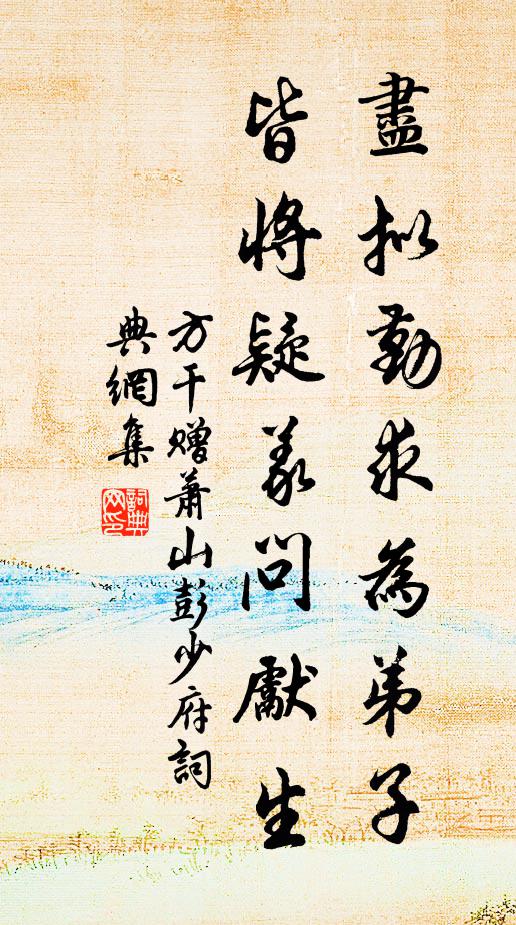 盡拟勤求為弟子
皆將疑義問獻生
方干赠萧山彭少府詞
典網集
詞典网印